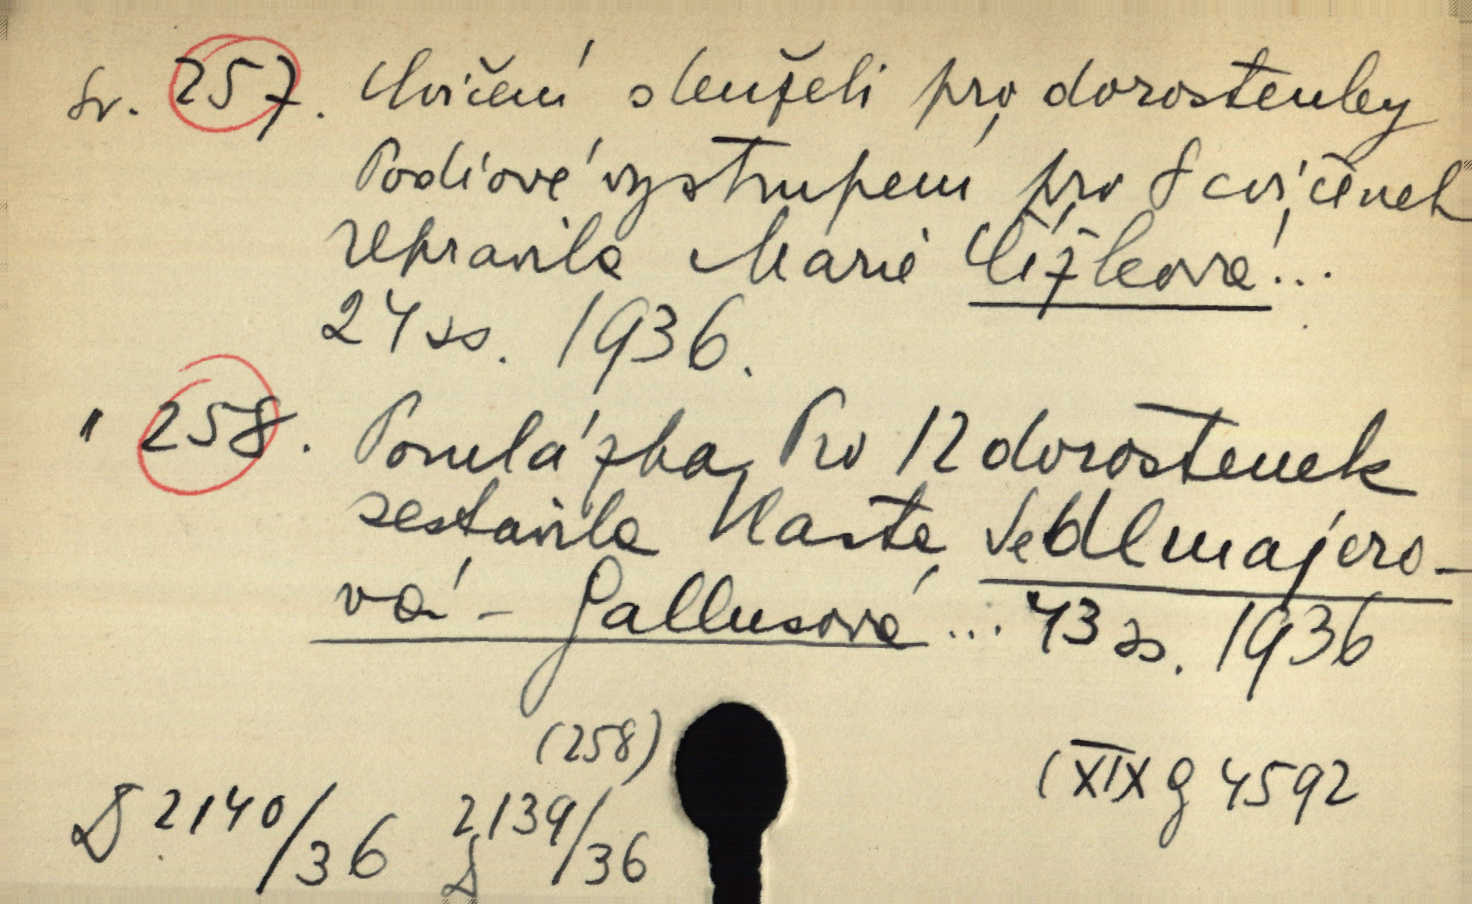 Sv. 257. Cvičení s kuželi pro dorostenky
Podiové vystoupení pro 8 cvičenek
Upravila Marie Čížková...
24 ss. 1936.
" 258. Pomlázka. Pro 12 dorostenek
sestavila Vlasta Sedlmajero-
vá - Gallusová ... 43 ss. 1936
(258)
D 2140/36 D 2139/36
(XIX g 4592